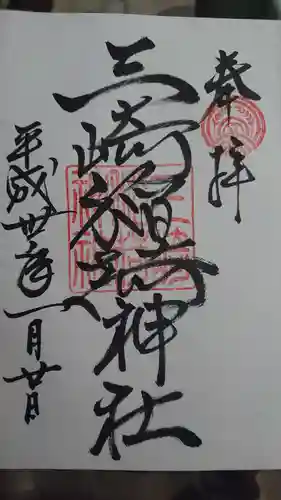 奉拝
三崎稲荷神社
平成丗年一月廿日